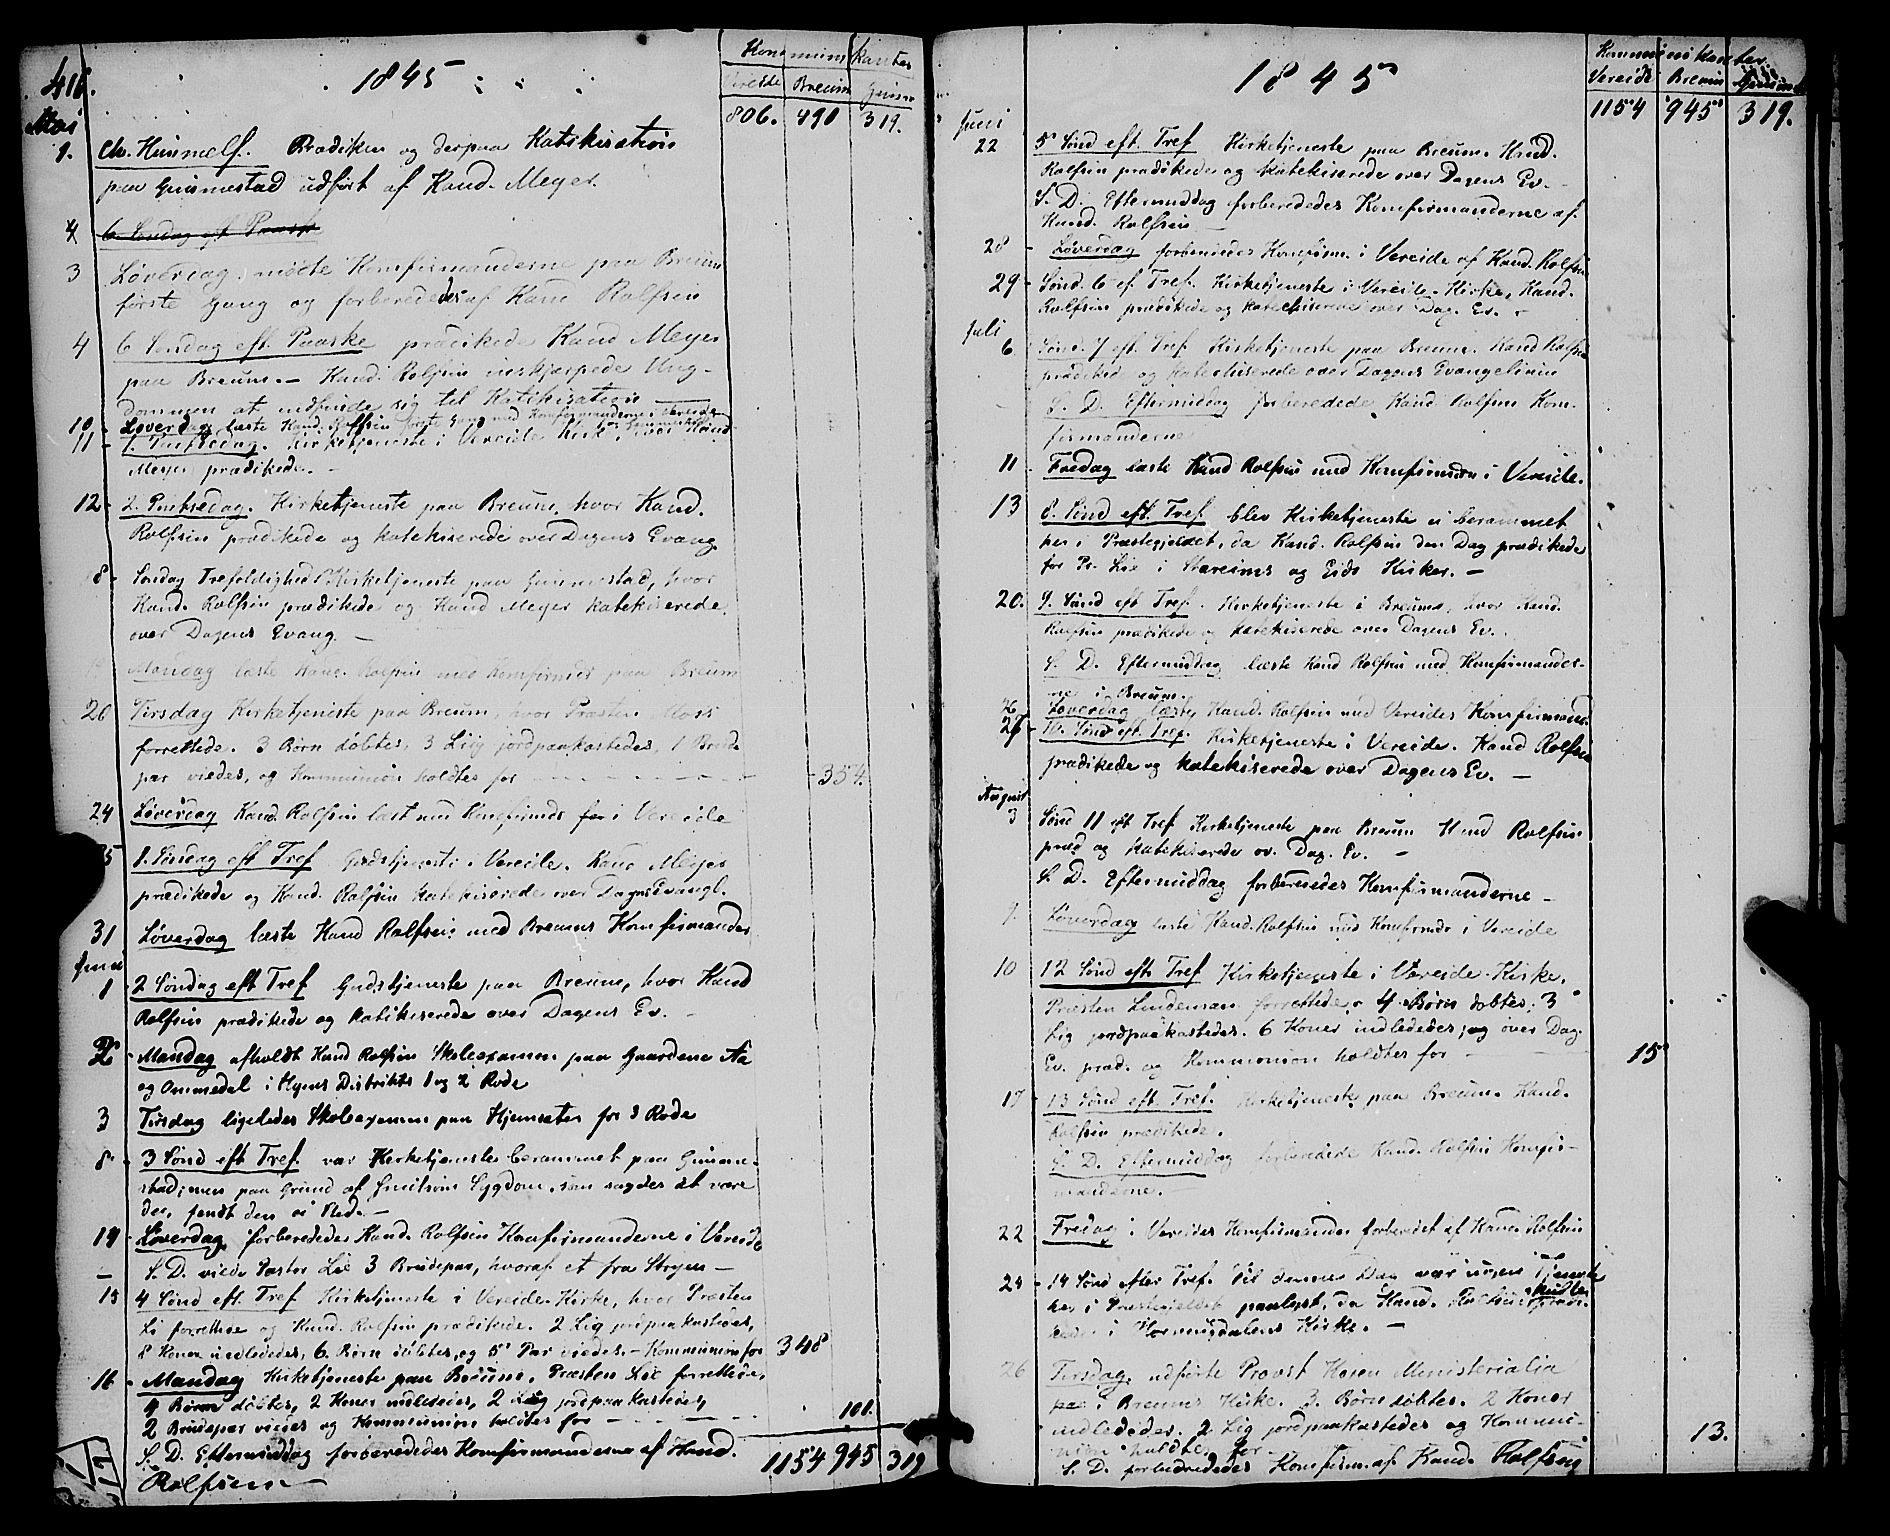 416.
1845
Kommunikanter
Vereide Breum Gimm
806. 491 319.
Mai
1. Chr. Himmelf. Prædiken og derpaa Katikisation
paa Gimmestad udført af Kand. Meyer.
4 6 Søndag eft Paaske
3 Løverdag mødte Komfirmanderne paa Breum
første Gang og forberededes af Kand Rolfsen
4 6 Søndag eft. Paaske prædikede Kand Meyer
paa Breum. — Kand. Rolfsen inskjærpede Ung-
dommen at indfinde sig til Katikisation —
10 - Løverdag læste Kand. Rolfsen første Gang med Komfirmanderne i Vereide
11 - 1. Pintsedag. Kirketjeneste i Vereide Kirk, hvor Kand
Meyer prædikede. -
12 - 2. Pintsedag. Kirketjeneste paa Breum, hvor Kand.
Rolfsen prædikede og katekiserede over Dagens Evang
8 - Søndag Trefoldighed Kirketjeneste paa Gimmestad, hvor
Kand. Rolfsen prædikede og Kand Meyer katekiserede
over Dagens Evang. —
19 Mandag læste Kand. Rolfsen med Komfirmder paa Breum
20 Tirsdag Kirketjeneste paa Breum, hvor Præsten Moss
forrettede. 3 Børn døbtes, 3 Liig jordpaakastedes, 1 Brude
par viedes, og Kommunion holdtes for - - - 354.
24 Løverdag Kand. Rolfsen læst med Komfirmds i Vereide
25 1. Søndag eft Tref Gudstjeneste i Vereide. Kand Meyer
prædikede og Kand. Rolfsen katekiserede over Dagens Evangl.
31 Løverdag læste Kand Rolfsen med Breums Komfirmander
Juni
1 - 2 Søndag eft Tref Gudstjeneste paa Breum, hvor Kand
Rolfsen prædikede og katikiserede over Dagens Ev. -
2 - Mandag afholdt Kand Rolfsen Skoleexamen paa Gaardene Aa
og Ommedal i Hyens Distrikts 1 og 2 Rode
3 Tirsdag ligeledes Skoleexamen paa Hjemsæter for 3 Rode
8 - 3 Sønd eft Tref. var Kirketjeneste berammet paa Gimme-
stad, men paa Grund af Sygdom, som sagdes at være
der, fandt den ei Sted. -
14 - Løverdag forberededes Kand. Rolfsen Komfirmanderne i Vereide
— S. D. viede Pastor Lie 3 Brudepar, hvoraf et fra Stryen —
15 4 Sønd eft. Tref Kirketjeneste i Vereide-Kirke, hvor Præsten
Li forrettede og Kand. Rolfsen prædikede. 2 Lig jordpaakastedes,
8 Koner indlededes, 6 Børn døbtes, og 5 Par viedes. - Kommunion for 348
16 - Mandag Kirketjeneste paa Breum. Præsten Lie forrettede,
4 Børn døbtes, 2 Koner indlededes, 2 Liig jordpaakastedes,
2 Brudepar viedes og Kommunion holdtes for - - - 100.
S. D. Eftermiddag forberededes Komfirmanderne af Kand.
Rolfsen —
1154 945 319
1845
Kommunikanter
Vereide Breum Gimme
1154 945 319.
Juni
22 5 Sønd eft. Tref Kirketjeneste paa Breum. Kand.
Rolfsen prædikede og katekiserede over Dagens Ev. -
S. D. Eftermiddag forberededes Komfirmanderne af
Kand. Rolfsen
28 - Løverdag forberededes Komfirm. i Vereide af Kand. Rolfsen
29 - Sønd. 6 ef Tref. Kirketjeneste i Vereide-Kirke, Kand.
Rolfsen prædikede og katechiserede over Dag. Ev. -
Juli
6 Sønd. 7 eft. Tref Kirketjeneste paa Breum. Kand Rolfsen
prædikede og katechiserede over Dagens Evangelium
S. D. Eftermiddag forberedede Kand. Rolfsen Kom-
firmanderne
11 - Fredag læste Kand Rolfsen med Komfirmdn i Vereide.
13 8. Sønd eft. Tref blev Kirketjeneste ei berammet
her i Præstegjeldet, da Kand. Rolfsen den Dag prædikede
for Pr. Lie i Stareims og Eids Kirker. -
20. 9. Sønd eft Tref. Kirketjeneste i Breum, hvor Kand.
Rolfsen prædikede og katekiserede over Dagens Ev.
S. D. Eftermiddag læste Kand Rolfsen med Komfirmander-
ne i Breum.
26 Løverdag læste Kand. Rolfsen med Vereides Komfirmand.
27 - 10. Sønd eft. Tref. Kirketjeneste i Vereide. Kand Rolfsen
prædikede og katekiserede over Dagens Ev. —
August
3 Sønd 11 eft Tref Kirketjeneste paa Breum Kand Rolfsen
præd og katekiserede ov. Dag. Ev. -
S. D. Eftermiddag forberededes Komfirmanderne -
9. Løverdag læste Kand. Rolfsen med Komfirmds i Vereide
10 12 Sønd eft. Tref Kirketjeneste i Vereide-Kirke.
Præsten Lindeman forrettede. 4 Børn døbtes, 3
Lig jordpaakastedes. 6 Koner indlededes, og over Dag.
Ev. præd. og Kommonion holdtes for - 15
17 13 Sønd eft. Tref. Kirketjeneste paa Breum. Kand.
Rolfsen prædikede.
S. D. Eftermiddag forberedede Kand. Rolfsen Komfir-
manderne.
22 Fredag i Vereides Komfirmander forberedet af Kand. Rolfsen
24 - 14 Sønd efter Tref. Til denne Dag var ingen Tjeneste
her i Præstegjeldet paalyst, da Kand. Rolfsen prædi-
kede i Hornigdalens Kirke. -
26 Tirsdag udførte Provst Koren Ministerialia
i Breums Kirke. 3 Børn døbtes. 2 Koner
indlededes. 2 Lig jordpaakastedes og Kommu-
nion holdtes for - 13.
S. D. forberededes Komfirm. af Kand. Rolfsen